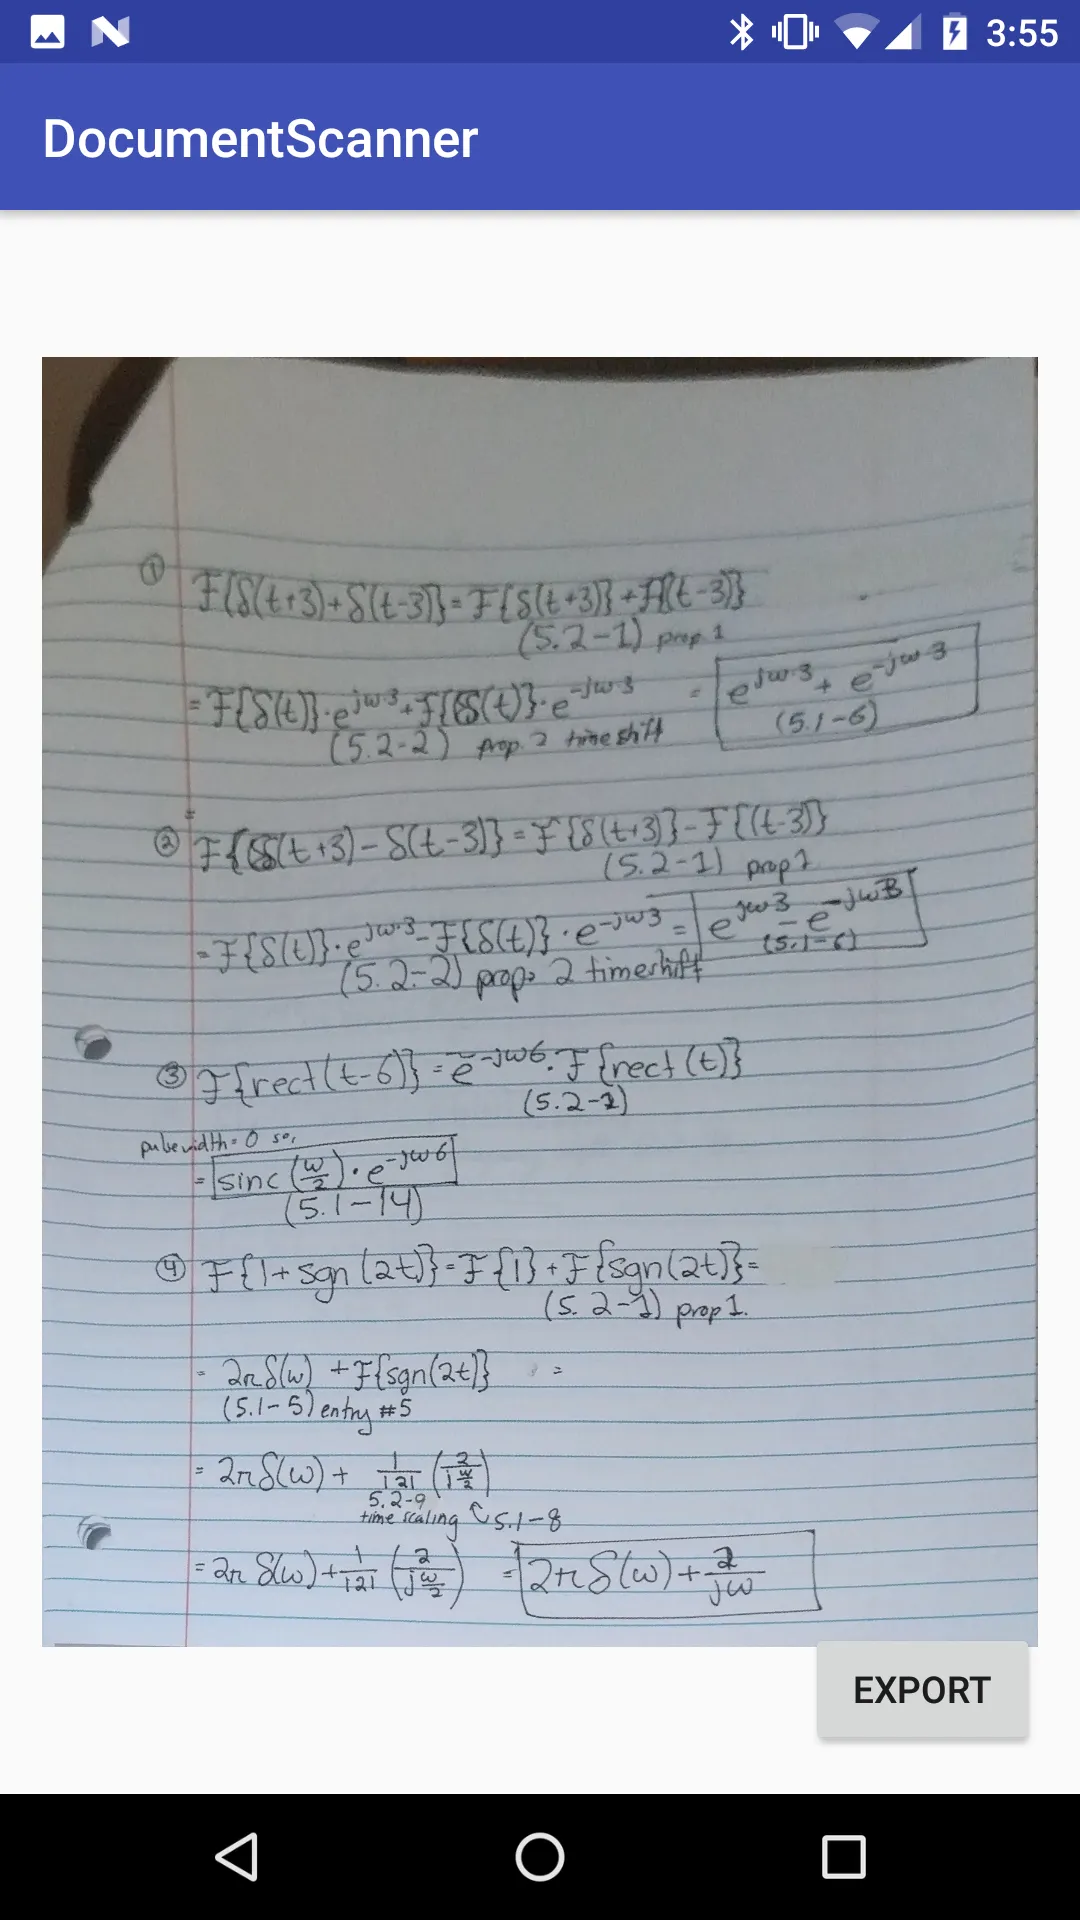 3:55
DocumentScanner
① F{δ(t+3)+δ(t-3)}=F{δ(t+3)}+F{(t-3)}
(5.2-1) prop 1
=F{δ(t)}·e^jω·3+F{δ(t)}·e^-jω·3 = e^jω·3 + e^-jω·3
(5.2-2) prop. 2 time shift (5.1-6)
=
② F{δ(t+3)-δ(t-3)}=F{δ(t+3)}-F{(t-3)}
(5.2-1) prop 1
=F{δ(t)}·e^jω·3-F{δ(t)}·e^-jω3 = e^jω3 - e^-jω3
(5.2-2) prop. 2 timeshift (5.1-6)
③ F{rect(t-6)}=e^-jω6·F{rect(t)}
(5.2-2)
pulse width=0 so,
= sinc(ω/2)·e^-jω6
(5.1-14)
④ F{1+sgn(2t)}=F{1}+F{sgn(2t)}=
(5.2-1) prop 1.
= 2πδ(ω) +F{sgn(2t)} =
(5.1-5) entry #5
= 2πδ(ω)+ 1/|2| (2/(j ω/2))
5.2-9
time scaling 5.1-8
= 2πδ(ω)+1/|2| (2/(j ω/2)) = 2πδ(ω)+2/jω
EXPORT